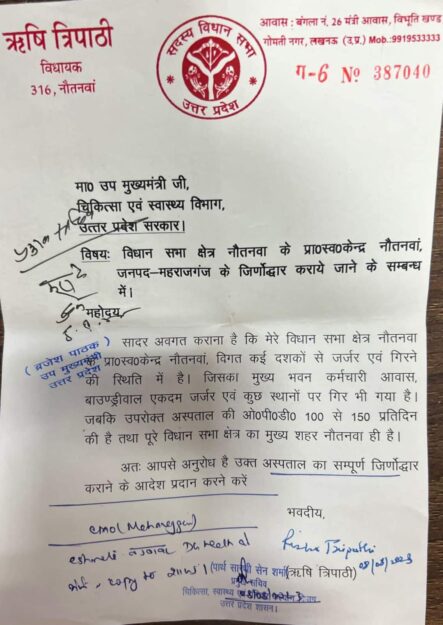 ऋषि त्रिपाठी
विधायक
316, नौतनवां
सदस्य विधान सभा
उत्तर प्रदेश
आवास : बंगला नं. 26 मंत्री आवास, विभूति खण्ड
गोमती नगर, लखनऊ (उ.प्र.) Mob.:9919533333
ग-6 No 387040
मा0 उप मुख्यमंत्री जी,
चिकित्सा एवं स्वास्थ्य विभाग,
उत्तर प्रदेश सरकार।
विषयः विधान सभा क्षेत्र नौतनवा के प्रा0स्व0केन्द्र नौतनवां,
जनपद–महराजगंज के जिर्णोद्धार कराये जाने के सम्बन्ध
में।
महोदय,
सादर अवगत कराना है कि मेरे विधान सभा क्षेत्र नौतनवा
के प्रा0स्व0केन्द्र नौतनवां, विगत कई दशकों से जर्जर एवं गिरने
की स्थिति में है। जिसका मुख्य भवन कर्मचारी आवास,
बाउण्ड्रीवाल एकदम जर्जर एवं कुछ स्थानों पर गिर भी गया है।
जबकि उपरोक्त अस्पताल की ओ0पी0डी0 100 से 150 प्रतिदिन
की है तथा पूरे विधान सभा क्षेत्र का मुख्य शहर नौतनवा ही है।
(ब्रजेश पाठक)
उप मुख्यमंत्री
उत्तर प्रदेश
अतः आपसे अनुरोध है उक्त अस्पताल का सम्पूर्ण जिर्णोद्धार
कराने के आदेश प्रदान करने करें
भवदीय,
CMO (Maharajganj)
(ऋषि त्रिपाठी)
(पार्थ सारथी सेन शर्मा)
प्रमुख सचिव
चिकित्सा, स्वास्थ्य
उत्तर प्रदेश शासन।